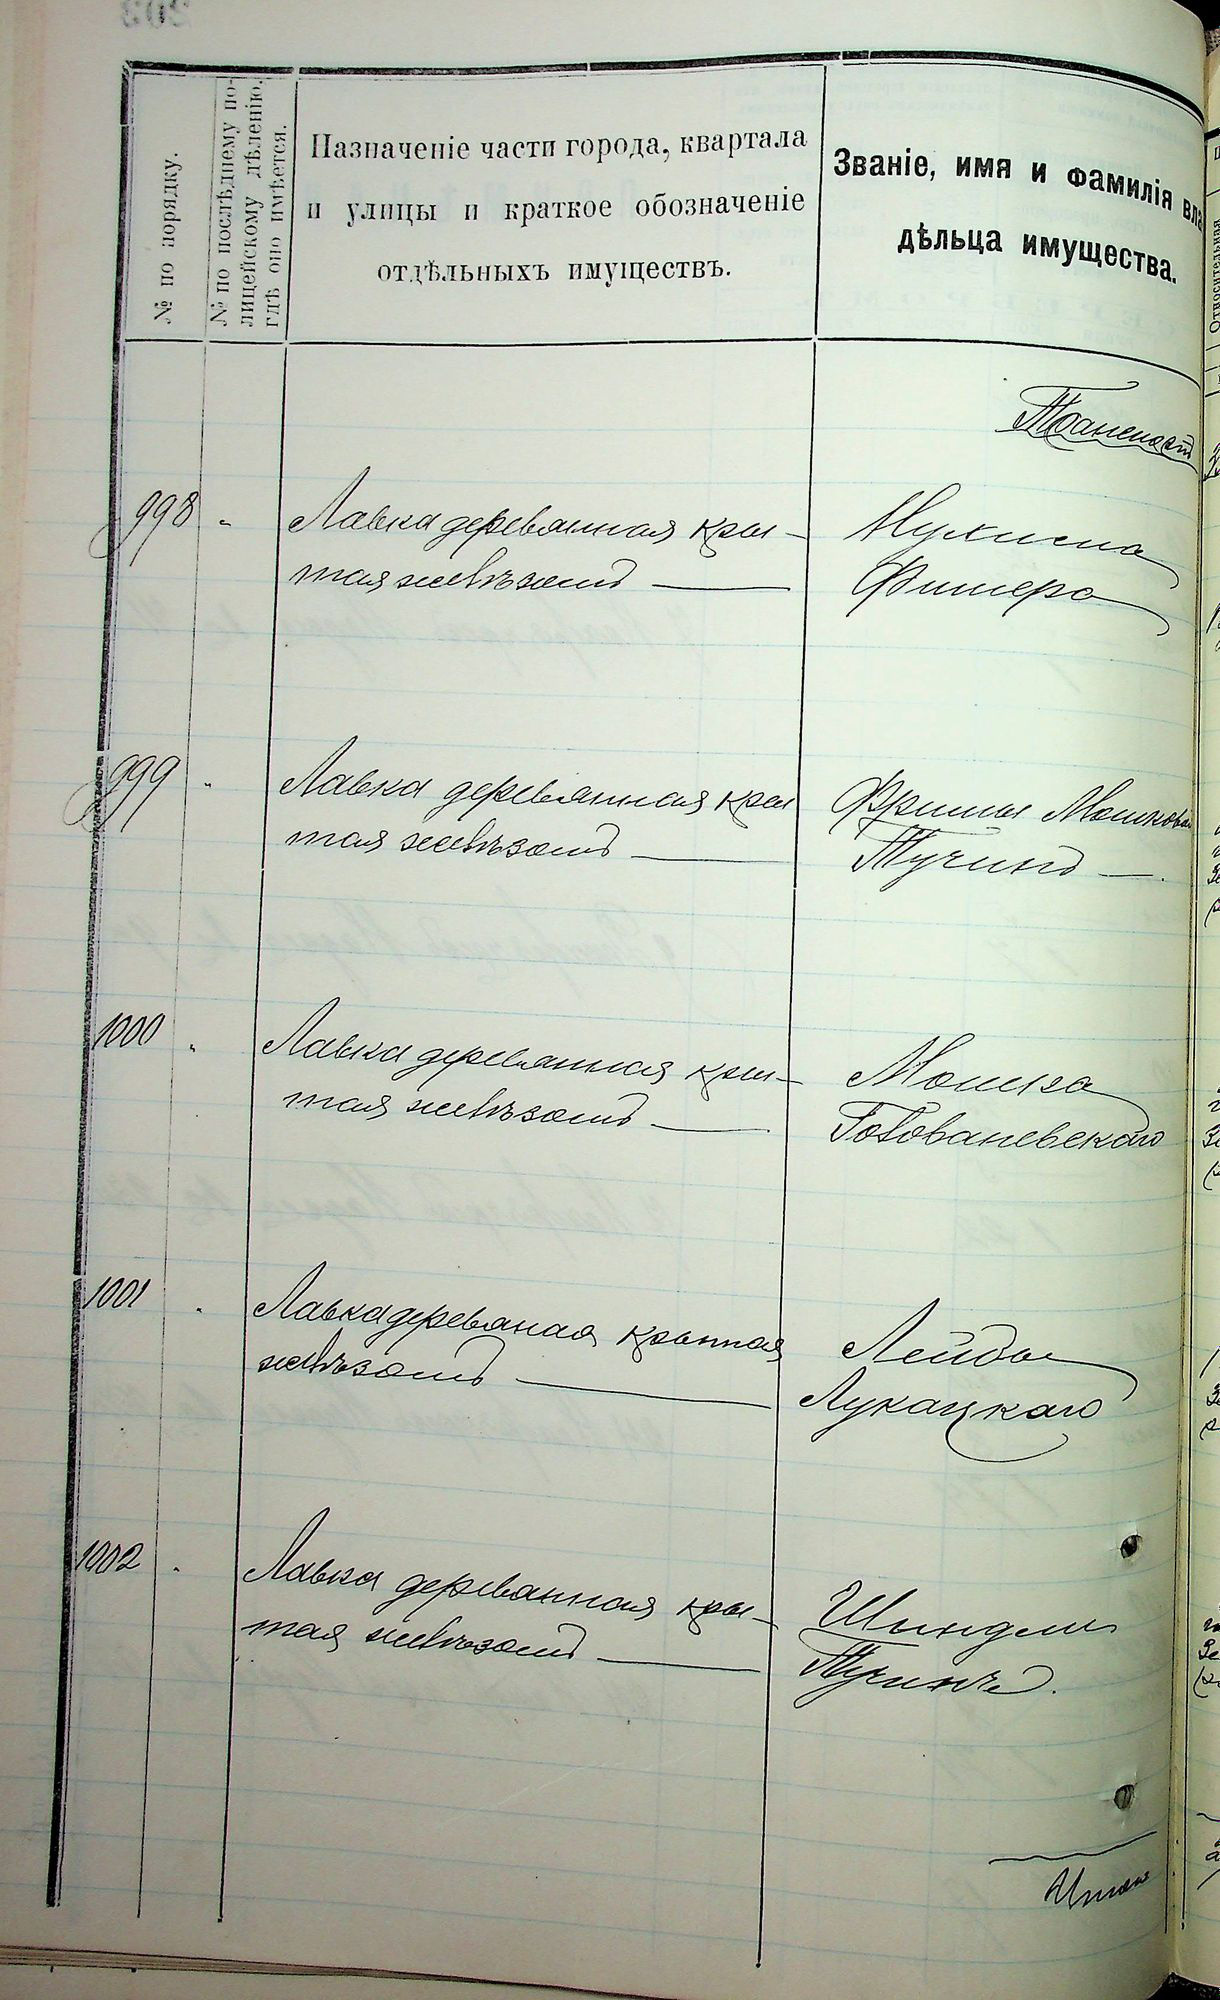 № по порядку.
№ по послѣднему по-
лицейскому дѣленію,
гдѣ оно имѣется.
Назначеніе части города, квартала
и улицы и краткое обозначеніе
отдѣльныхъ имуществъ.
Званіе, имя и фамилія вла
дѣльца имущества.
Транспортъ
998 "
Лавка деревянная кры-
тая желѣзомъ
Нухима
Фишера
999 "
Лавка деревянная кры
тая желѣзомъ
Фримы Мошковой
Тучинъ
1000 "
Лавка деревянная кры-
тая желѣзомъ
Мошка
Голованевскаго
1001 "
Лавка деревяная крытая
желѣзомъ
Лейбы
Лукацкаго
1002 "
Лавка деревянная кры-
тая желѣзомъ
Шиндли
Тучинъ
Итого